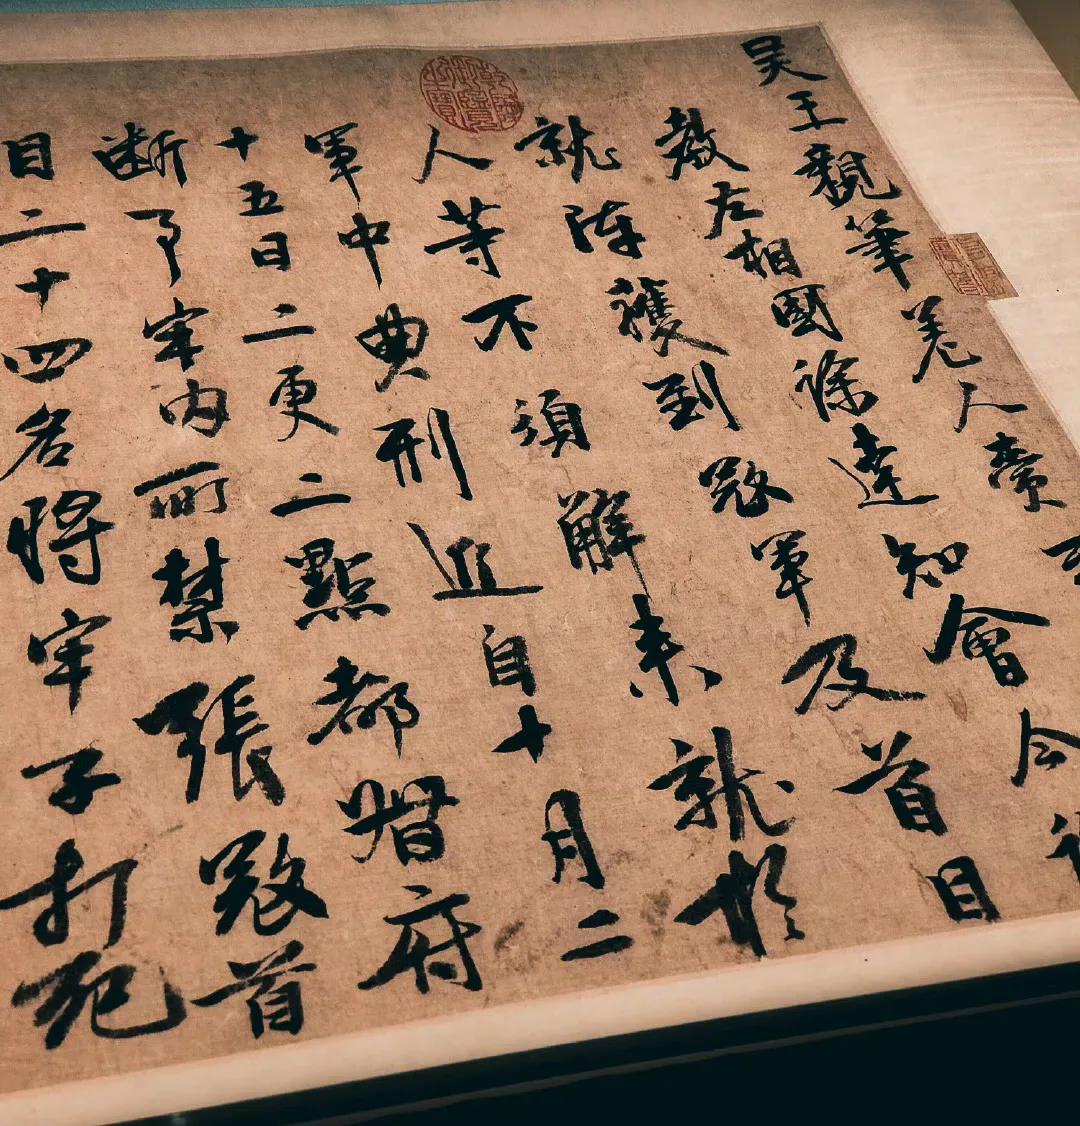 吳王親筆差人賫
教左相國徐達知會今
就陣獲到寇軍及首目
人等不須解來就於
軍中典刑近自十月二
十五日二更二點都督府
斷事牢內所禁張寇首
目二十四名將牢子打死